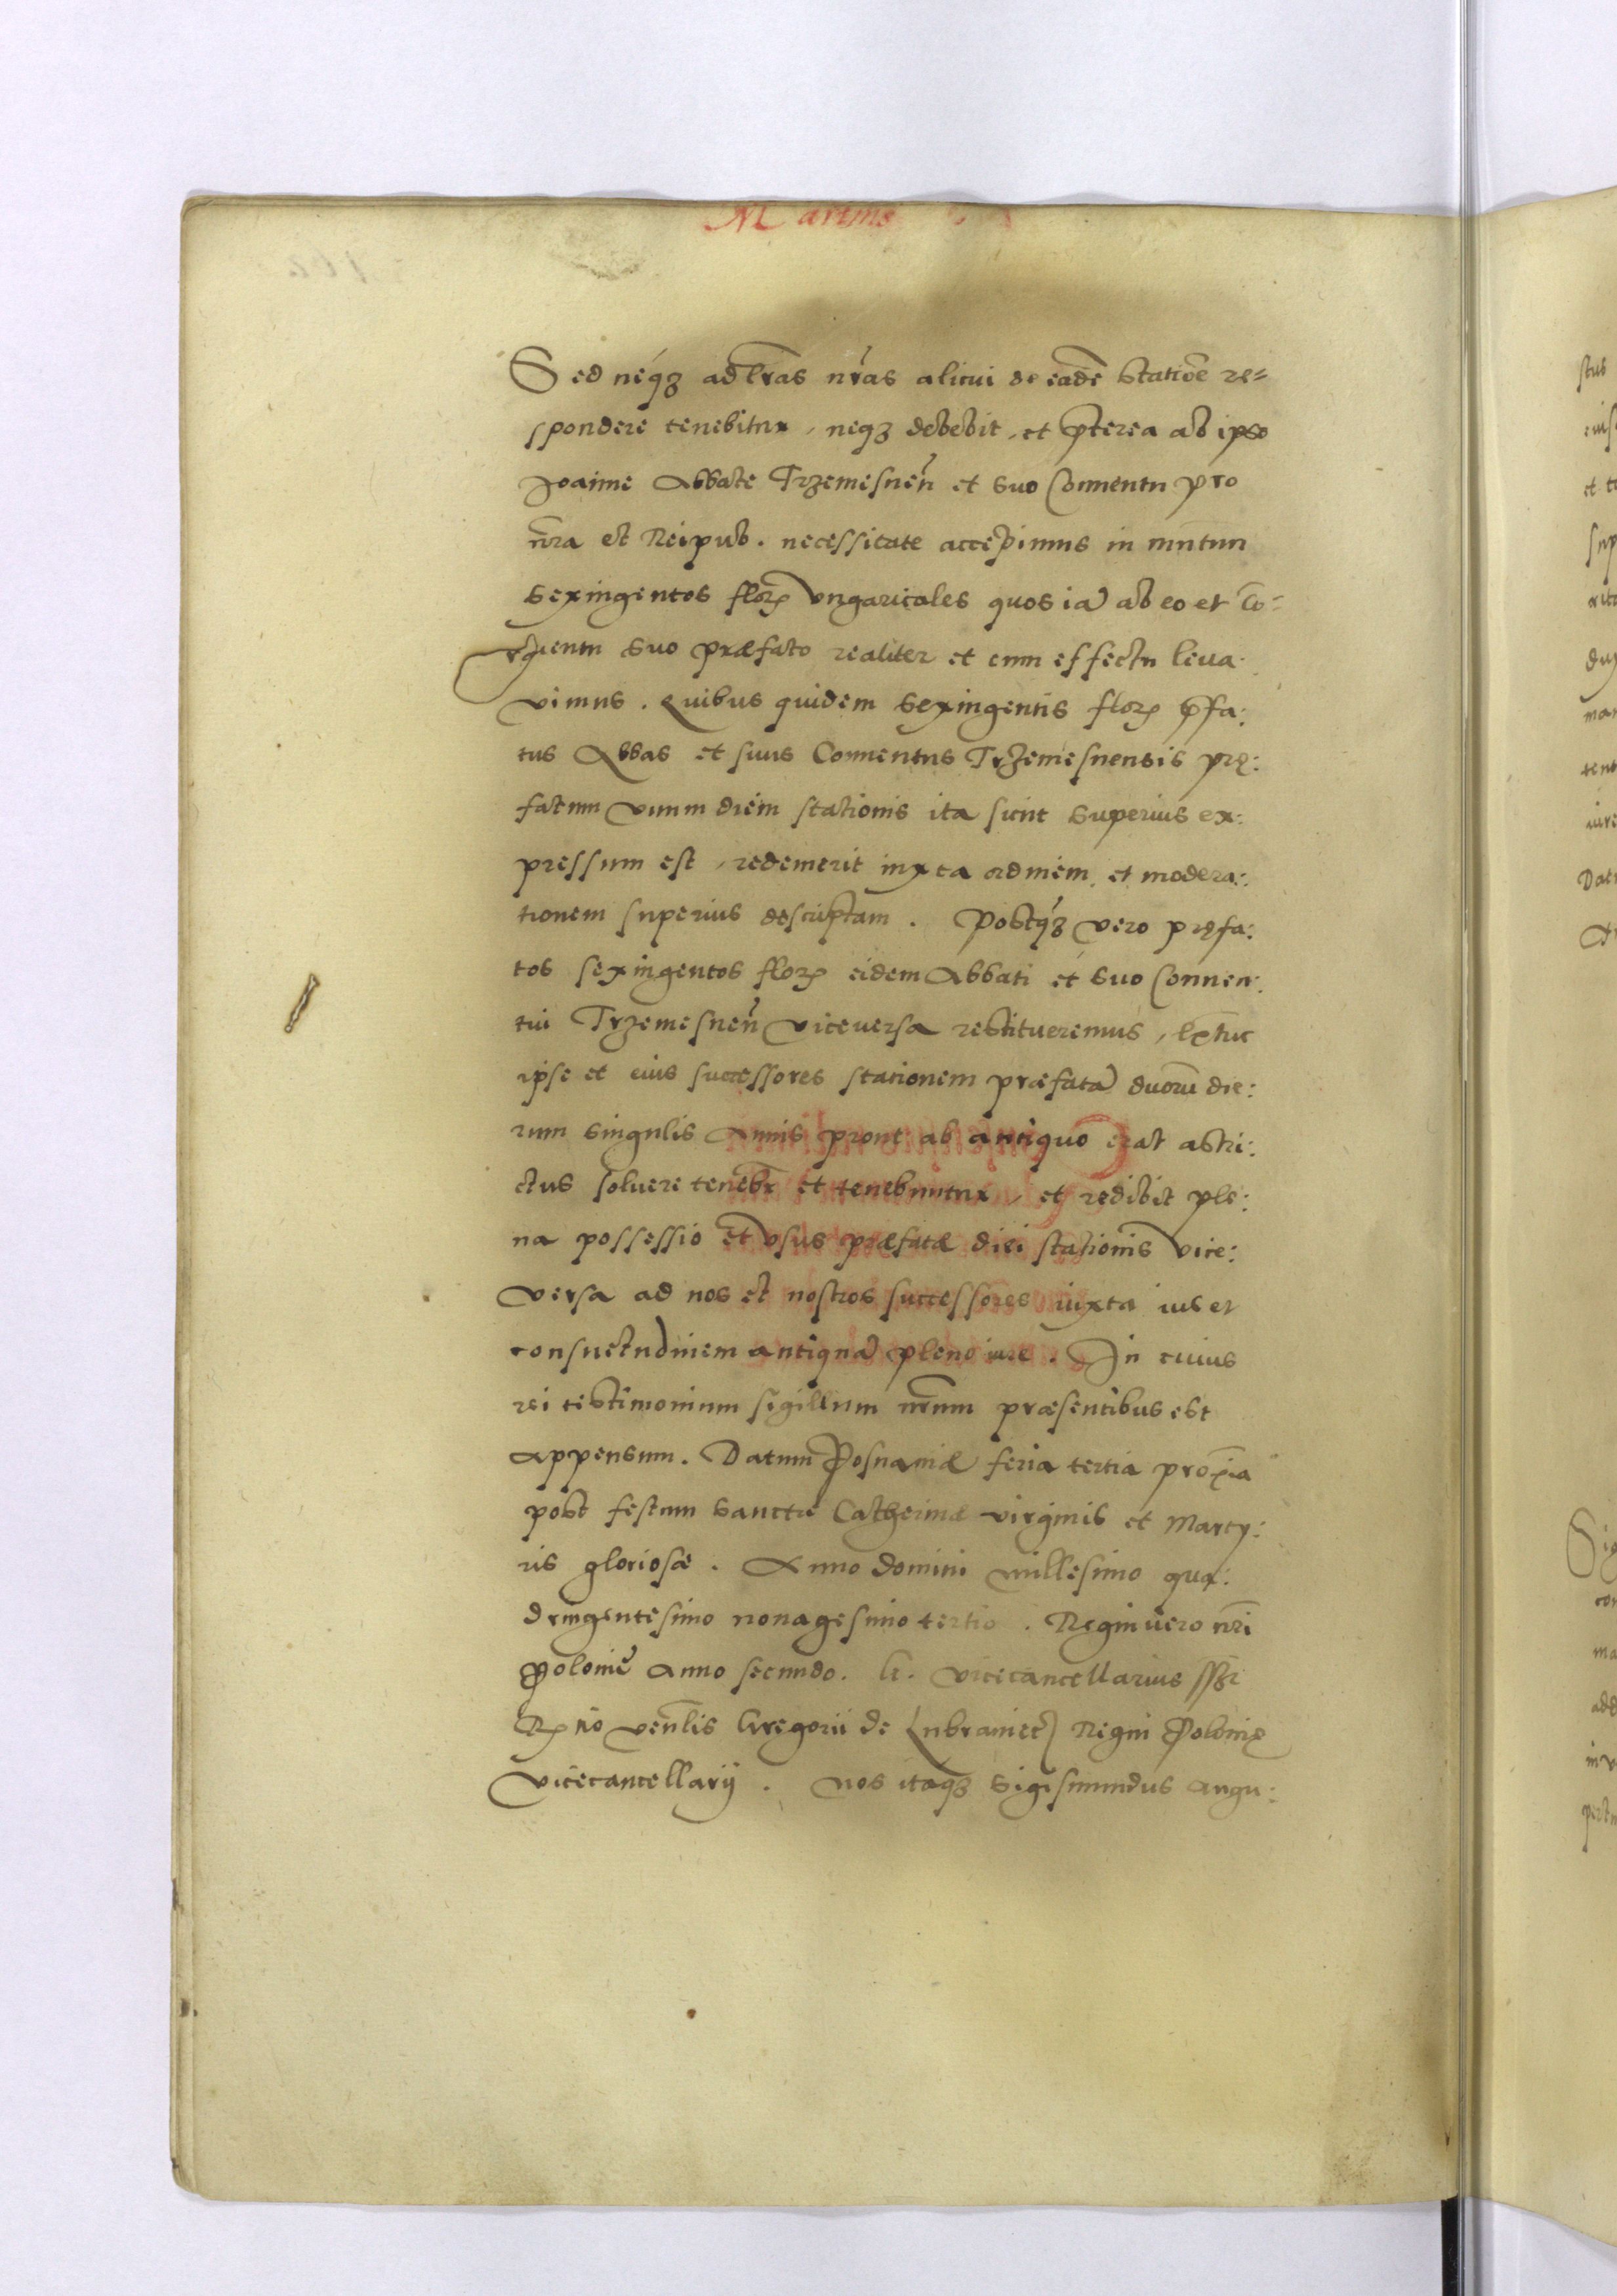 Martius
Sed neqꝫ ad lr̃as nr̃as alicui de eadẽ statiõe re=
spondere tenebitur, neqꝫ debebit, et p̃terea ab ipso
Joanne Abbate Trzemesneñ et suo Conuentu pro
nr̃a et Reipub. necessitate accepimus in mutuu
sexingentos floꝝ vngaricales quos iã ab eo et Co-
nuentu suo præfato realiter et cum effectu leua-
vimus. Quibus quidem sexingentis floꝝ p̃fa:
tus Abbas et suus Conuentus Trzemesnensis prę:
fatum vnum diem stationis ita sicut superius ex:
pressum est, redemerit iuxta ordinem et modera:
tionem superius descriptam. Postqꝫ vero pręfa:
tos sexingentos floꝝ eidem Abbati et suo Conuen:
tui Trzemesneñ viceversa restitueremus, extũc
ipse et eius successores stationem præfatã duorũ die:
rum singulis Annis prout ab antiquo erat astri:
ctus soluere tenebr̃ et tenebuntur, et redibit ple:
na possessio et vsus præfatæ diei stationis vice:
versa ad nos et nostros successores iuxta ius et
consuetudinem antiquã pleno iure. In cuius
rei testimonium sigillum nr̃um præsentibus est
appensum. Datum Posnaniæ feria tertia proxĩa
post festum sanctæ Catherinæ virginis et Marty:
ris gloriosæ. Anno domini millesimo qua:
dringentesimo nonagesimo tertio. Regni vero nr̃i
Polonię Anno secundo. G. vicecancellarius sspt
Rῳ̃o ven̄lis Gregorii de Lubraniecz Regni Polonię
vicecancellarij. Nos itaqꝫ Sigismundus Augu: